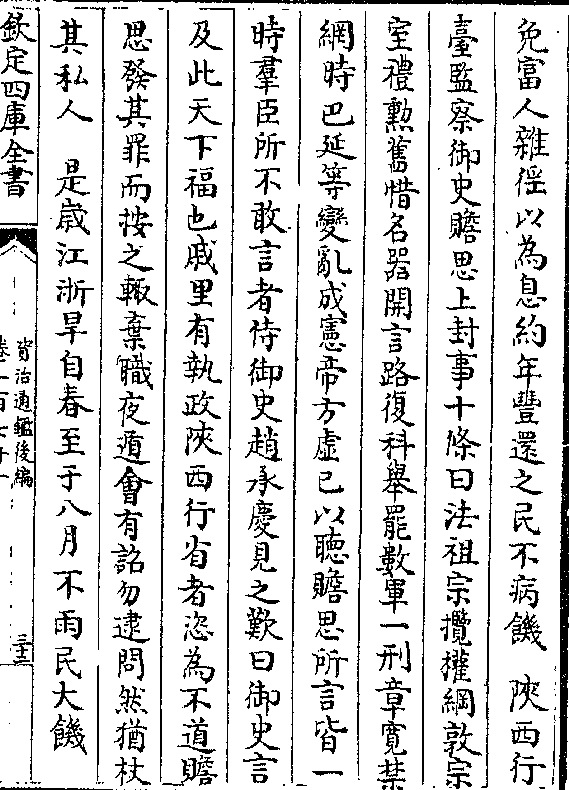 免富人雜徭以為息約年豐還之民不病饑　陝西行
臺監察御史贍思上封事十條曰法祖宗攬權綱敦宗
室禮勲舊惜名器開言路復科舉罷數軍一刑章寛禁
網時巴延等變亂成憲帝方虚己以聴贍思所言皆一
時羣臣所不敢言者侍御史趙承慶見之歎曰御史言
及此天下福也戚里有執政陝西行省者恣為不道贍
思發其罪而按之輙棄職夜遁會有詔勿逮問然猶杖
其私人　是歳江浙旱自春至于八月不雨民大饑
欽定四庫全書
資治通鑑後編
三十二